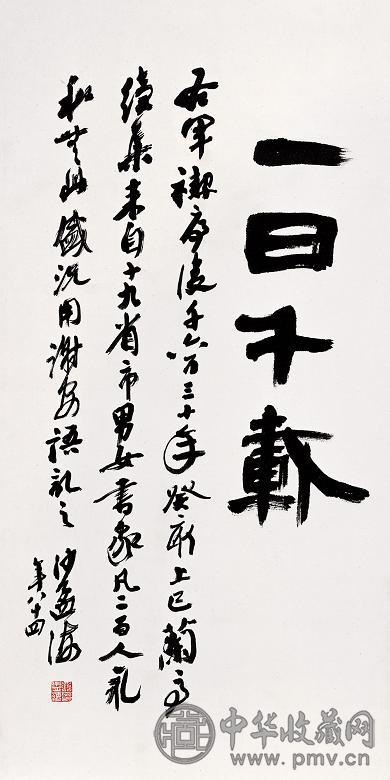 一日千載
右軍禊序後千六百三十年癸亥上巳蘭亭
續集來自十九省市男女書家凡二百人永
和無此盛況用謝安語記之
沙孟海
年八十四
中华收藏网
www.pmv.cn